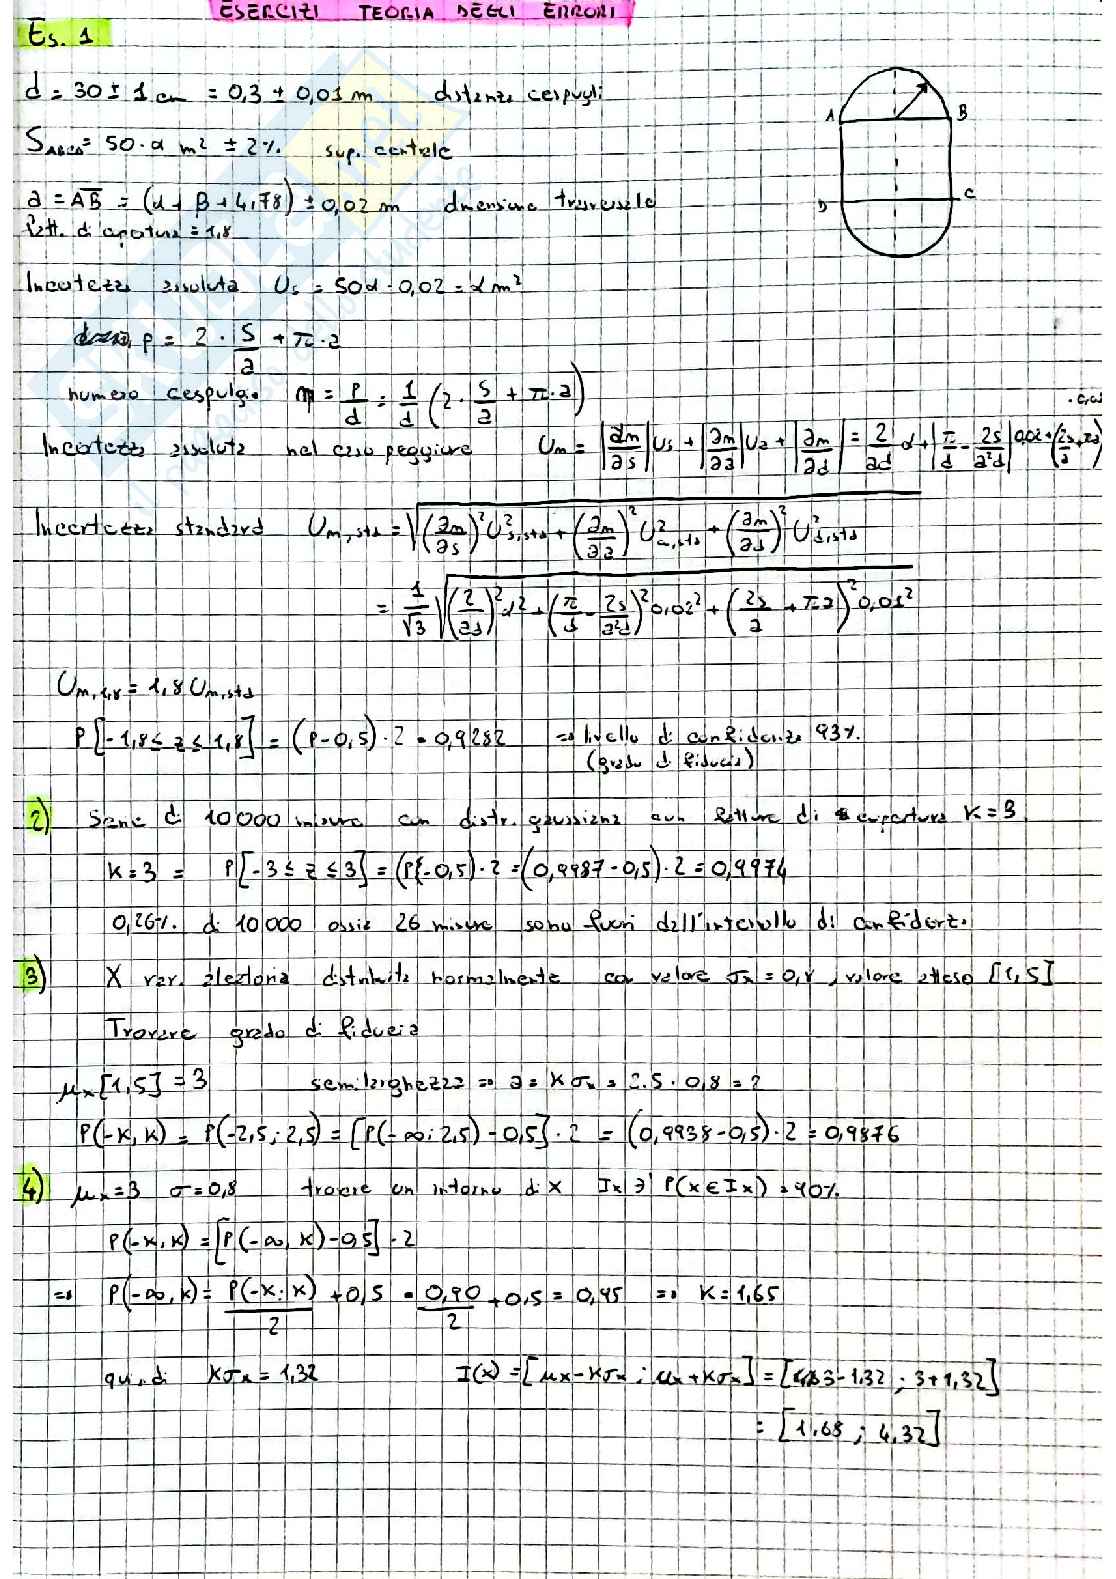 ESERCIZI TEORIA DEGLI ERRORI
Es. 1
d = 30 ± 1 cm = 0,3 ± 0,01 m distanza cespugli
S_ABCD = 50·α m² ± 2% sup. centrale
a = AB = (α + β + 4,78) ± 0,02 m dimensione trasversale
Fatt. di copertura = 1,8
A B
D C
Incertezza assoluta U_s = 50α · 0,02 = α m²
p = 2 · S/a + π·a
numero cespugli m = p/d = 1/d (2 · S/a + π·a)
Incertezza assoluta nel caso peggiore U_m = |∂m/∂s| U_s + |∂m/∂a| U_a + |∂m/∂d| = 2/ad α + |π/d - 2s/a²d| 0,02 + (2s/a + πa) · 0,01
Incertezza standard U_m,std = √((∂m/∂s)² U²_s,std + (∂m/∂a)² U²_a,std + (∂m/∂d)² U²_d,std)
= 1/√3 √((2/ad)² α² + (π/d - 2s/a²d)² 0,02² + (2s/a + πa)² 0,01²)
U_m,1,8 = 1,8 U_m,std
P[-1,8 ≤ z ≤ 1,8] = (P-0,5)·2 = 0,9282 => livello di confidenza 93%.
(grado di fiducia)
2) Serie di 10000 misure con distr. gaussiana avn fattore di copertura K=3
K=3 = P[-3 ≤ z ≤ 3] = (P{-0,5)·2 = (0,9987-0,5)·2 = 0,9974
0,26%. di 10000 ossia 26 misure sono fuori dall'intervallo di confidenz.
3) X var. aleatoria distribuita normalmente con valore σx = 0,8, valore atteso [1,5]
Trovare grado di fiducia
μx [1,5] = 3 semilarghezza => a = K σx = 2.5 · 0,8 = 2
P(-K, K) = P(-2,5; 2,5) = [P(-∞; 2,5) - 0,5]·2 = (0,9938-0,5)·2 = 0,9876
4) μx=3 σ=0,8 trovare un intorno di X Ix ∋' P(x∈Ix) = 90%
P(-K, K) = [P(-∞, K) - 0,5]·2
=> P(-∞, K) = P(-K; K)/2 + 0,5 = 0,90/2 + 0,5 = 0,95 => K = 1,65
quindi Kσx = 1,32 I(x) = [μx - Kσx ; μx + Kσx] = [3 - 1,32 ; 3 + 1,32]
= [1,68 ; 4,32]